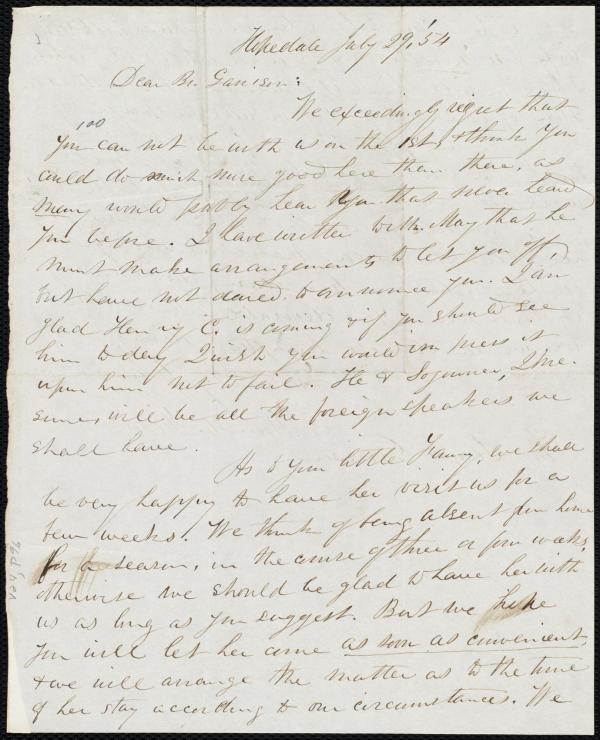 Hopedale July 29, '54
Dear Br. Garrison:
We exceedingly regret that
you can not be with us on the 1st, & think you
could do much more good here than there, as
many would probly hear you that never heard
you before. I have written to Mr. May that he
must make arrangements to let you off,
but have not dared to announce you. I am
glad Henry C. is coming & if you should see
him to day I wish you would impress it
upon him not to fail. He & Sojourner, I pre-
sume, will be all the foreign speakers we
shall have.
As to your little Fanny, we shall
be very happy to have her visit us for a
few weeks. We think of being absent from home
for a season, in the course of three or four weeks,
otherwise we should be glad to have her with
us as long as you suggest. But we hope
you will let her come as soon as convenient,
& we will arrange the matter as to the time
of her stay according to our circumstances. We
100
V.24, P.96